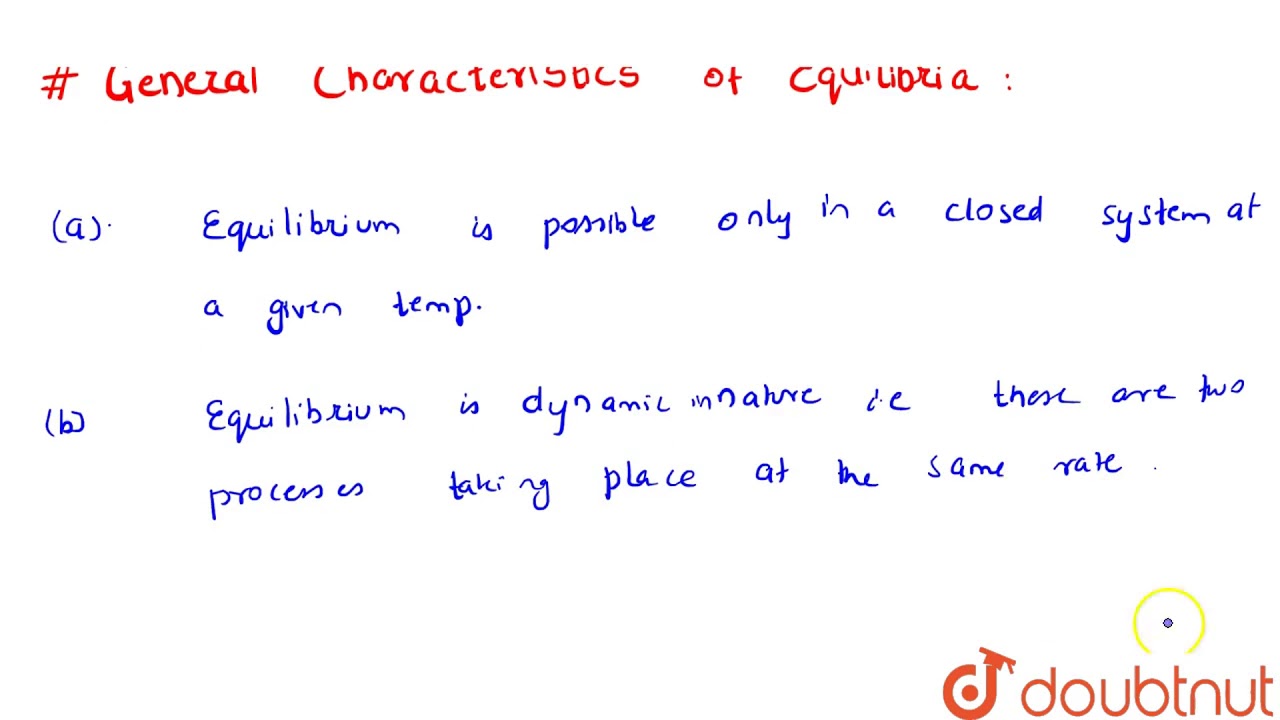 # General Characteristics of Equilibria :
(a). Equilibrium is possible only in a closed system at
a given temp.
(b) Equilibrium is dynamic in nature i.e these are two
processes taking place at the same rate .
doubtnut